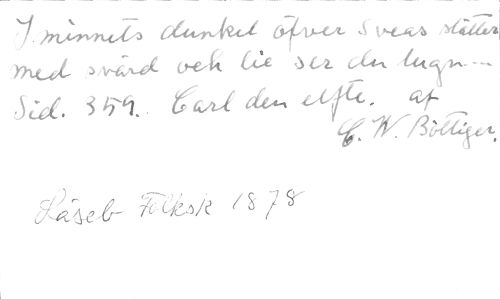 I minnets dunkel öfver Sveas slätter
med svärd och lie ser du lugn ---
Sid. 359. Carl den elfte. af
C. W. Böttiger.
Läseb Folksk 1878